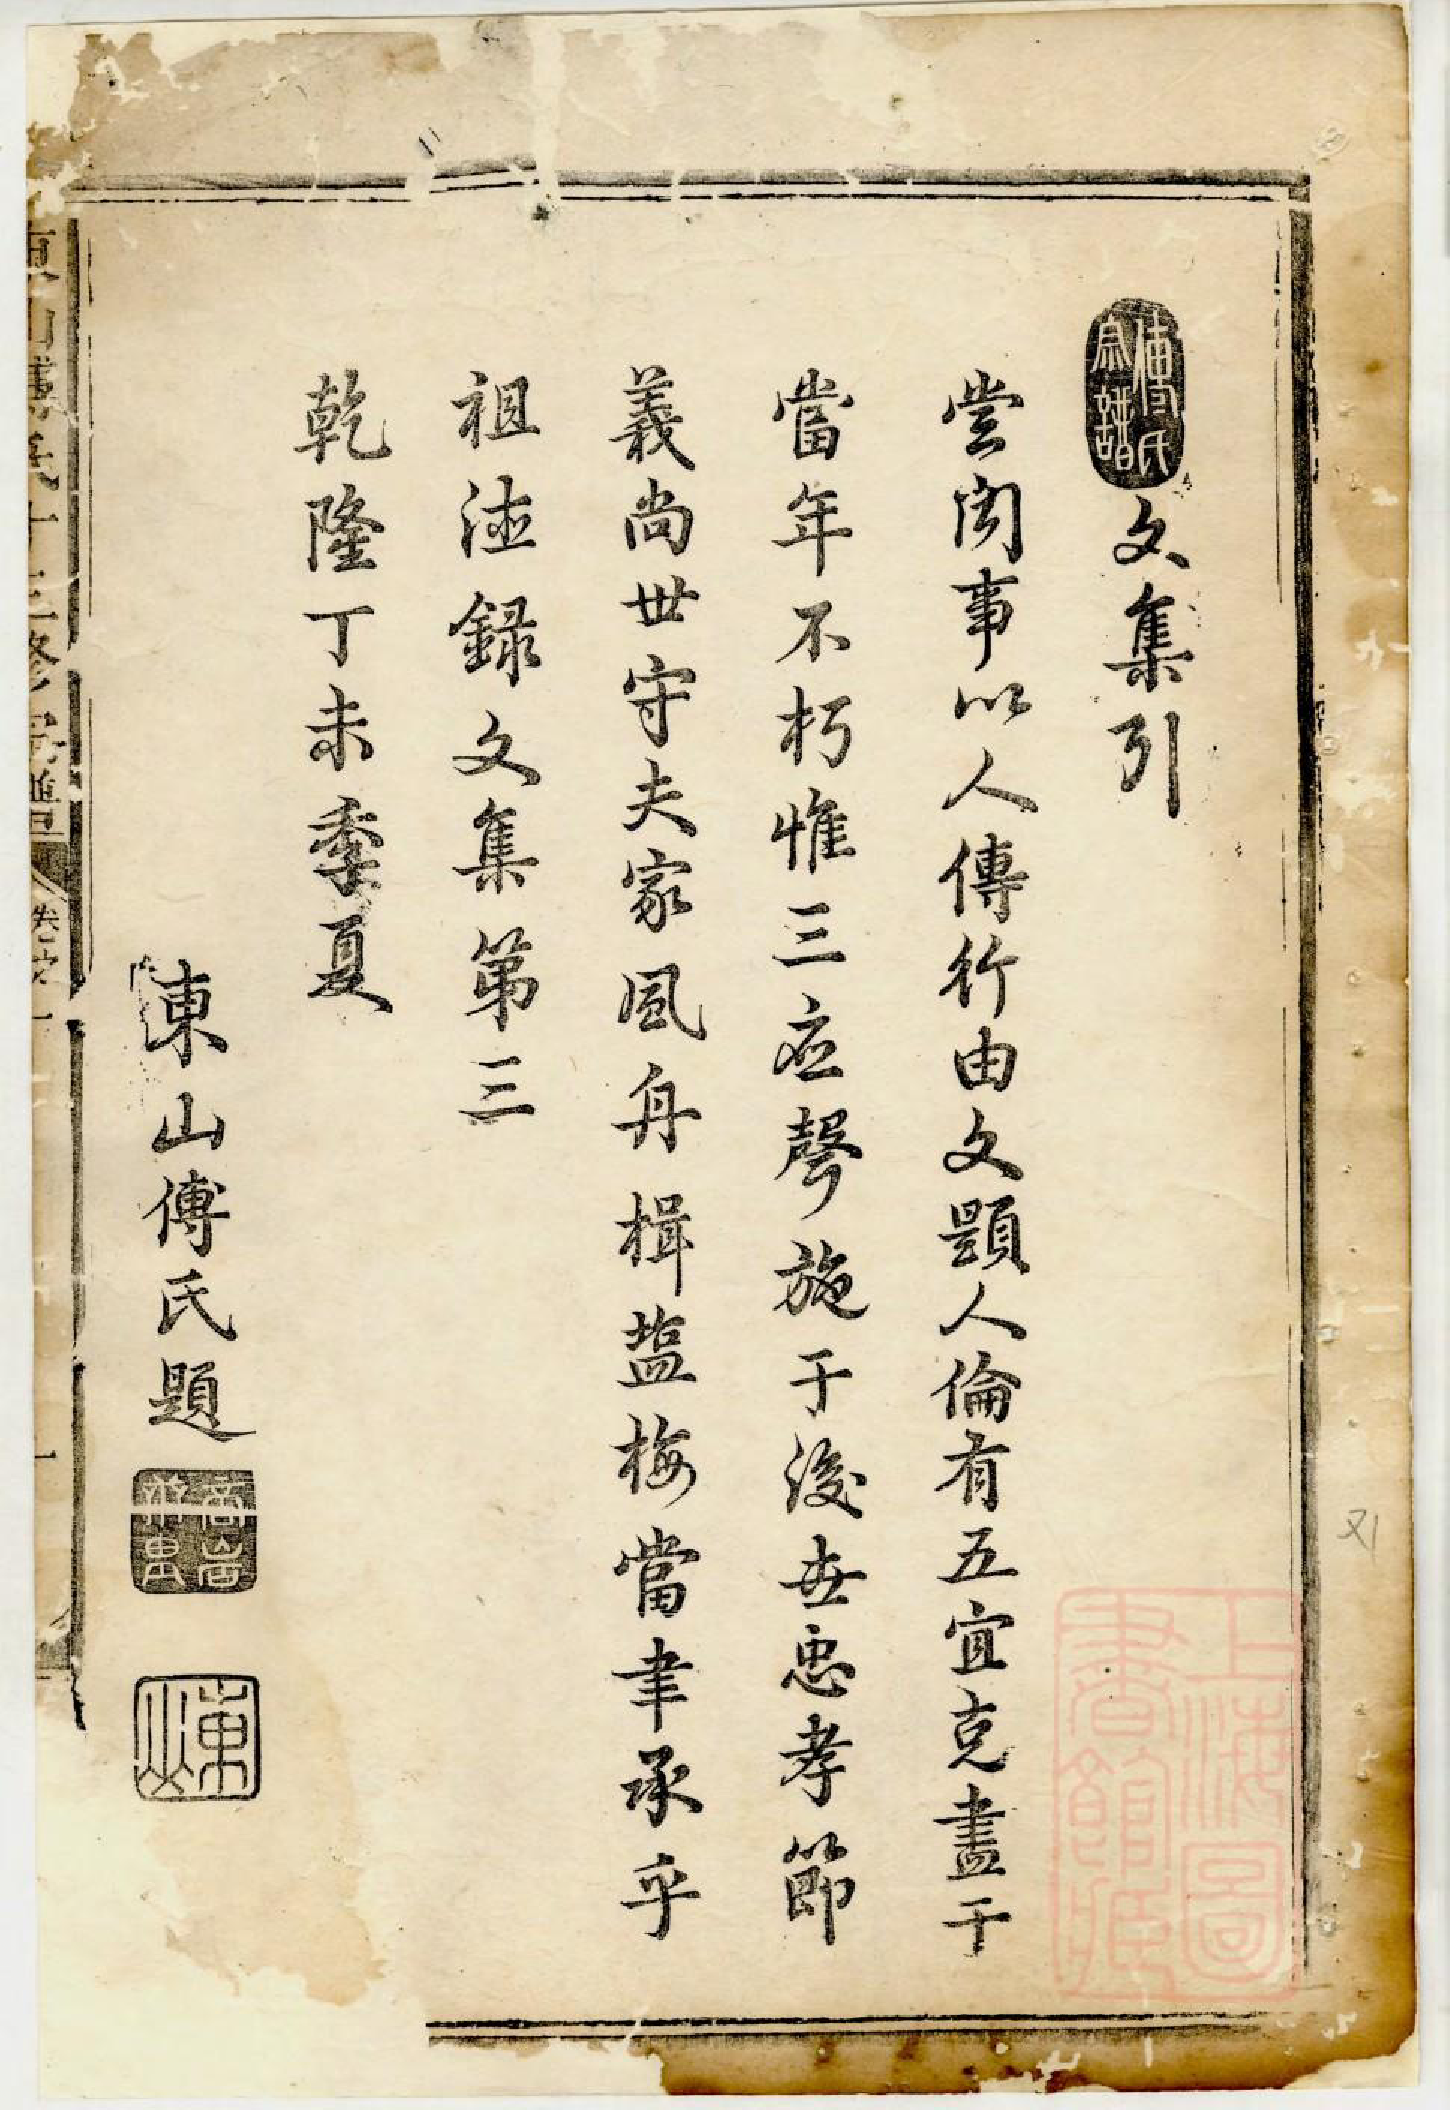 傅氏宗譜
文集引
嘗聞事以人傳行由文顕人倫有五宜克盡于
當年不朽惟三应聲施于後世忠孝節
義尚世守夫家風舟楫塩梅當聿承乎
祖德録文集第三
乾隆丁未季夏
東山傅氏題
東山
東山傅氏十三修宗譜
卷之一
一
上海圖書館藏